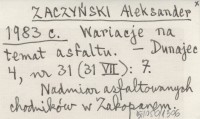 ZACZYŃSKI Aleksander
1983 c. Wariacje na
temat asfaltu. — Dunajec
4, nr 31 (31 VII): 7.
Nadmiar asfaltowanych
chodników w Zakopanem.